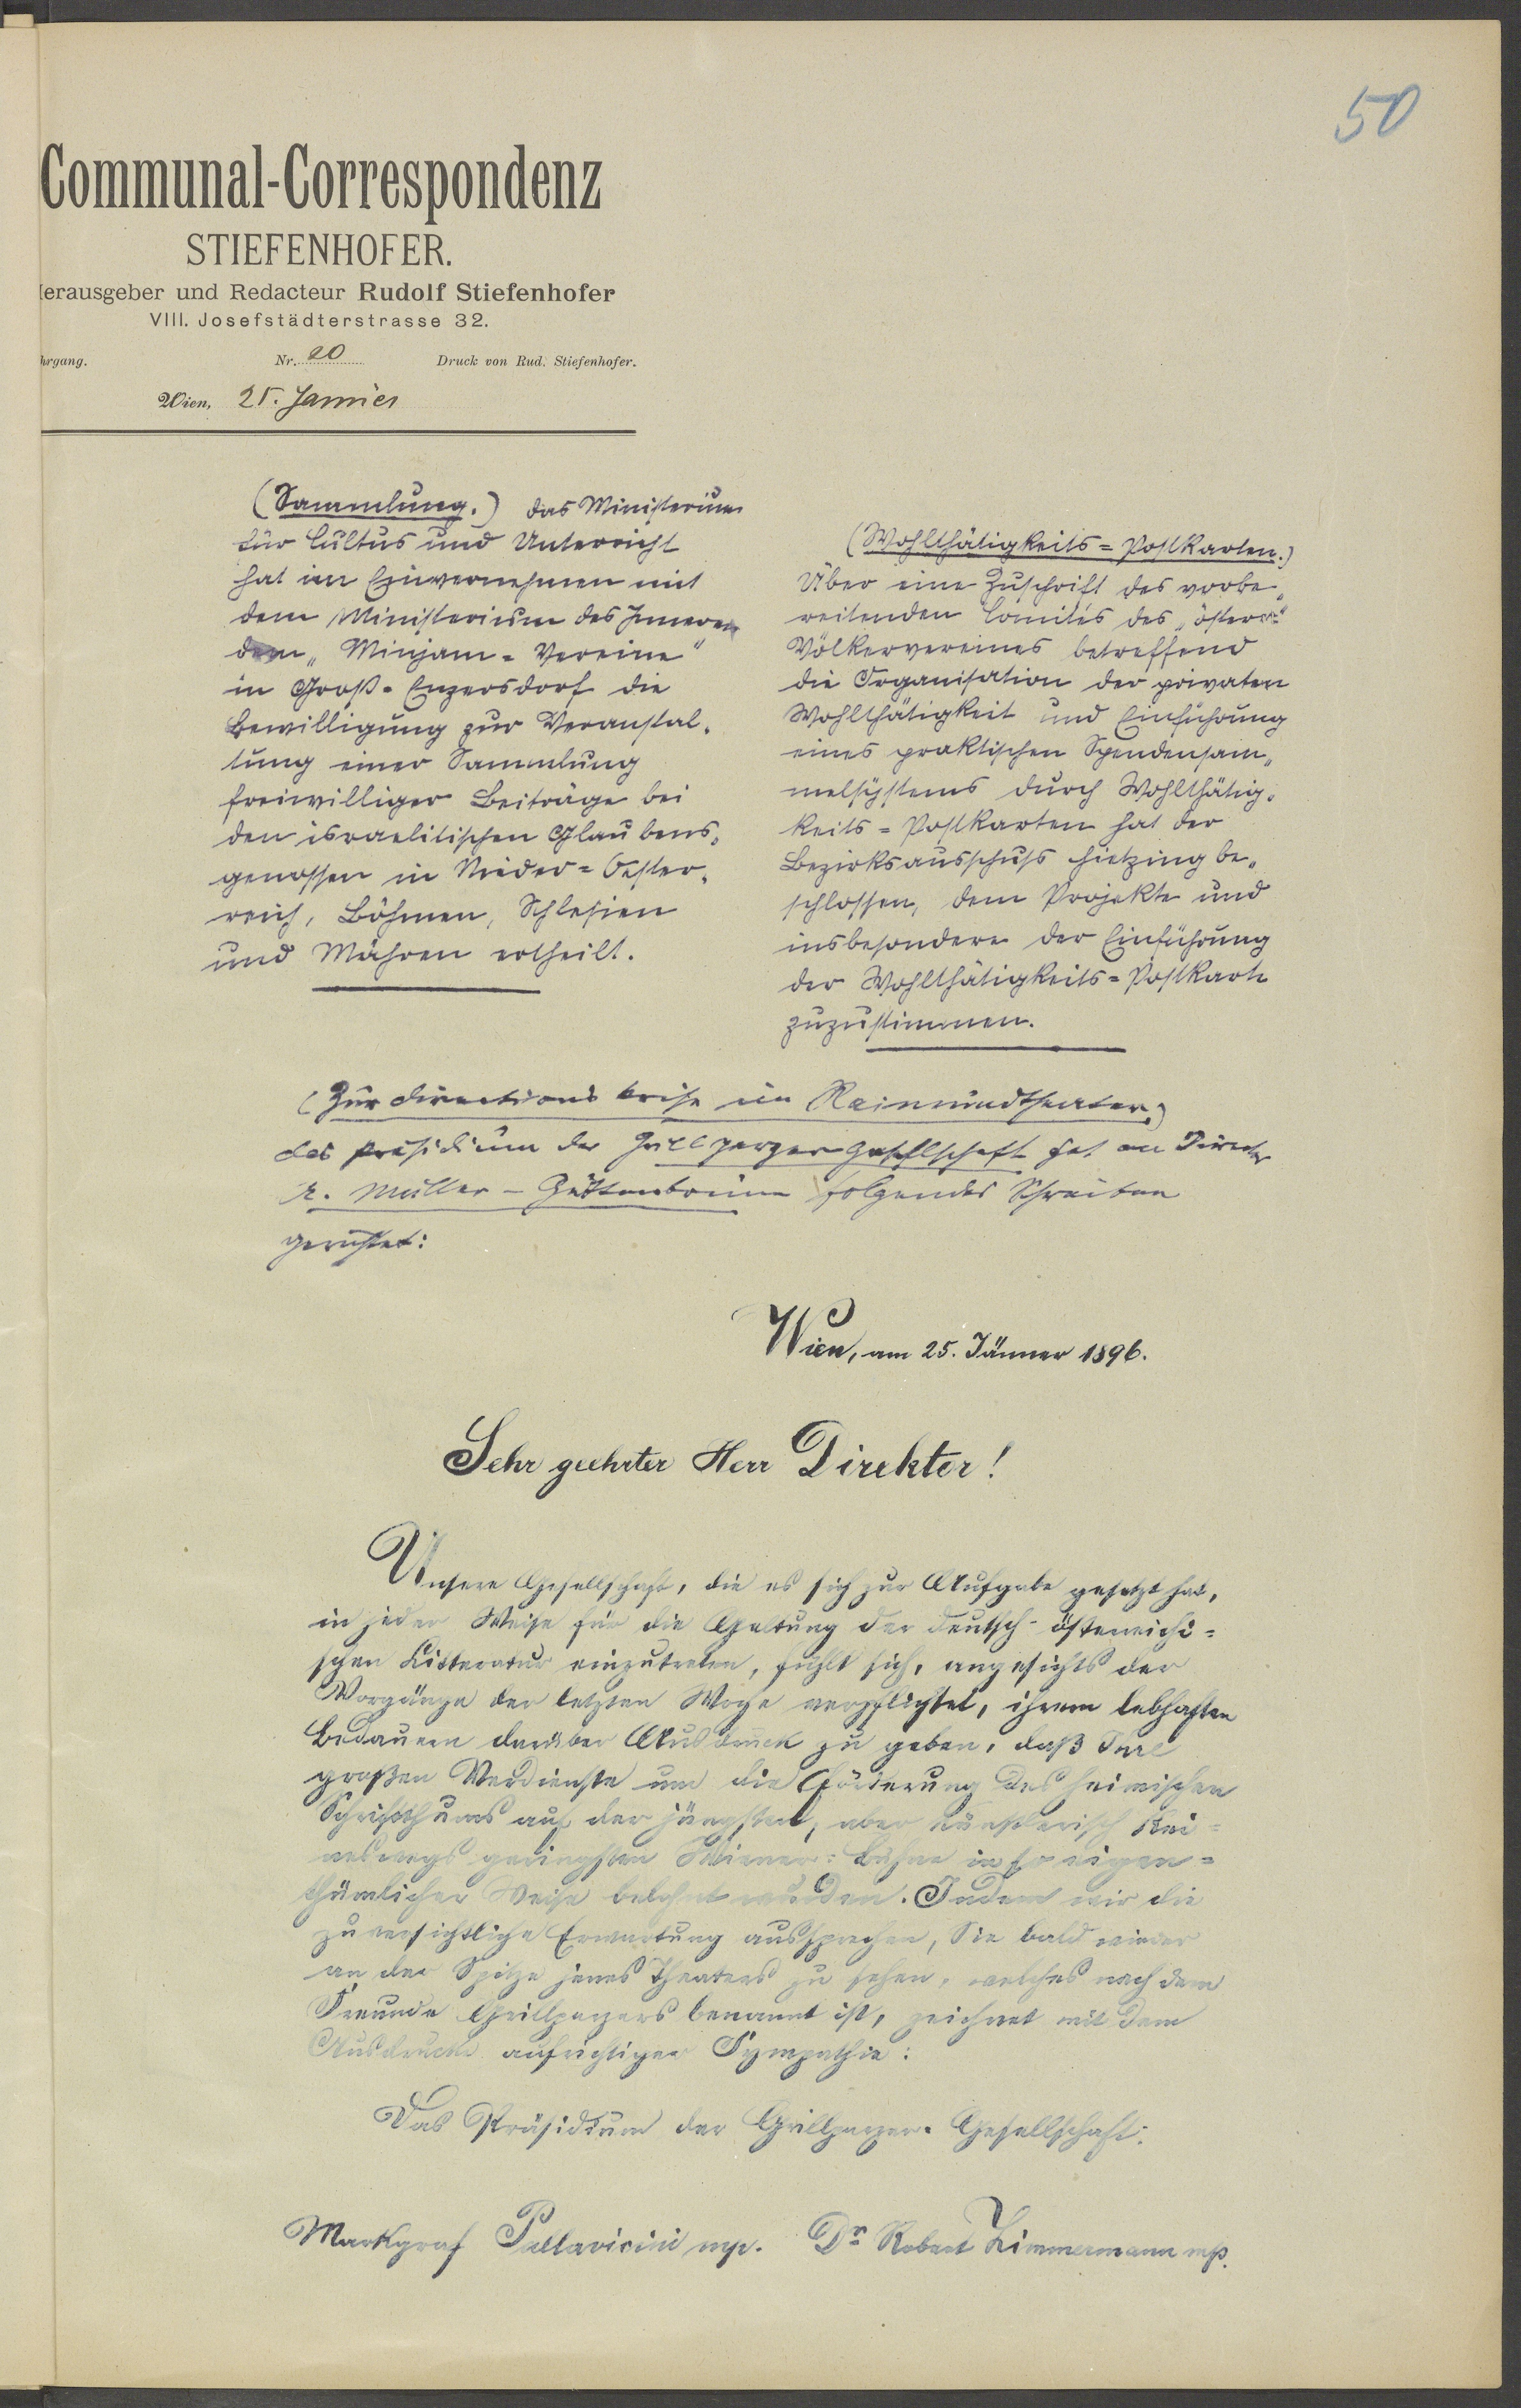 50
Communal-Correspondenz
STIEFENHOFER.
erausgeber und Redacteur Rudolf Stiefenhofer
VIII. Josefstädterstrasse 32.
hrgang. Nr. 20 Druck von Rud. Stiefenhofer.
Wien, 25. Jannier
(Sammlung.) das Ministerium
für Cultus und Unterricht
hat im Einvernehmen mit
dem Ministerium des Inneren
dem „Minjam-Vereine"
in Groß-Enzersdorf die
Bewilligung zur Veranstal-
tung einer Sammlung
freiwilliger Beiträge bei
den israelitischen Glaubens-
genossen in Nieder-Oester-
reich, Böhmen, Schlesien
und Mähren ertheilt.
(Wohlthätigkeits-Postkarten.)
Über eine Zuschrift des vorbe-
reitenden Comités des „österr."
Völkervereines betreffend
die Organisation der privaten
Wohlthätigkeit und Einführung
eines praktischen Spendensam-
melsystems durch Wohlthätig-
keits-Postkarten hat der
Bezirksausschuss Hietzing be-
schlossen, dem Projekte und
insbesondere der Einführung
der Wohlthätigkeits-Postkarte
zuzustimmen.
(Zur Directionskrise im Raimundtheater.)
das Präsidium der Grillparzer Gesellschaft hat an Director
A. Müller-Guttenbrunn folgendes Schreiben
gerichtet:
Wien, am 25. Jänner 1896.
Sehr geehrter Herr Direktor!
Unsere Gesellschaft, die es sich zur Aufgabe gesetzt hat,
in jeder Weise für die Geltung der deutsch-österreichi-
schen Litteratur einzutreten, fühlt sich, angesichts der
Vorgänge der letzten Woche verpflichtet, ihrem lebhaften
Bedauern darüber Ausdruck zu geben, daß Ihre
großen Verdienste um die Förderung des heimischen
Schriftthums auf der jüngsten, aber künstlerisch kei-
neswegs geringsten Wiener-Bühne in so eigen-
thümlicher Weise belohnt wurden. Indem wir die
zuversichtliche Erwartung aussprechen, Sie bald wieder
an der Spitze jenes Theaters zu sehen, welches nach dem
Freunde Grillparzers benannt ist, zeichnet mit dem
Ausdrucke aufrichtiger Sympathie:
Das Präsidium der Grillparzer-Gesellschaft:
Markgraf Pallavicini mp. Dr Robert Zimmermann mp.